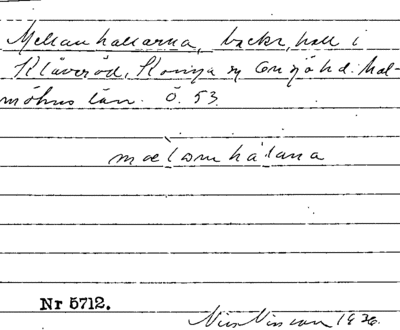 Mellanhallarna, backe, hall i
Klåveröd, Konga sn Onsjö hd. Mal-
möhus län. Ö. 53.
Nr 5712.
Nils Nilsson 1936.